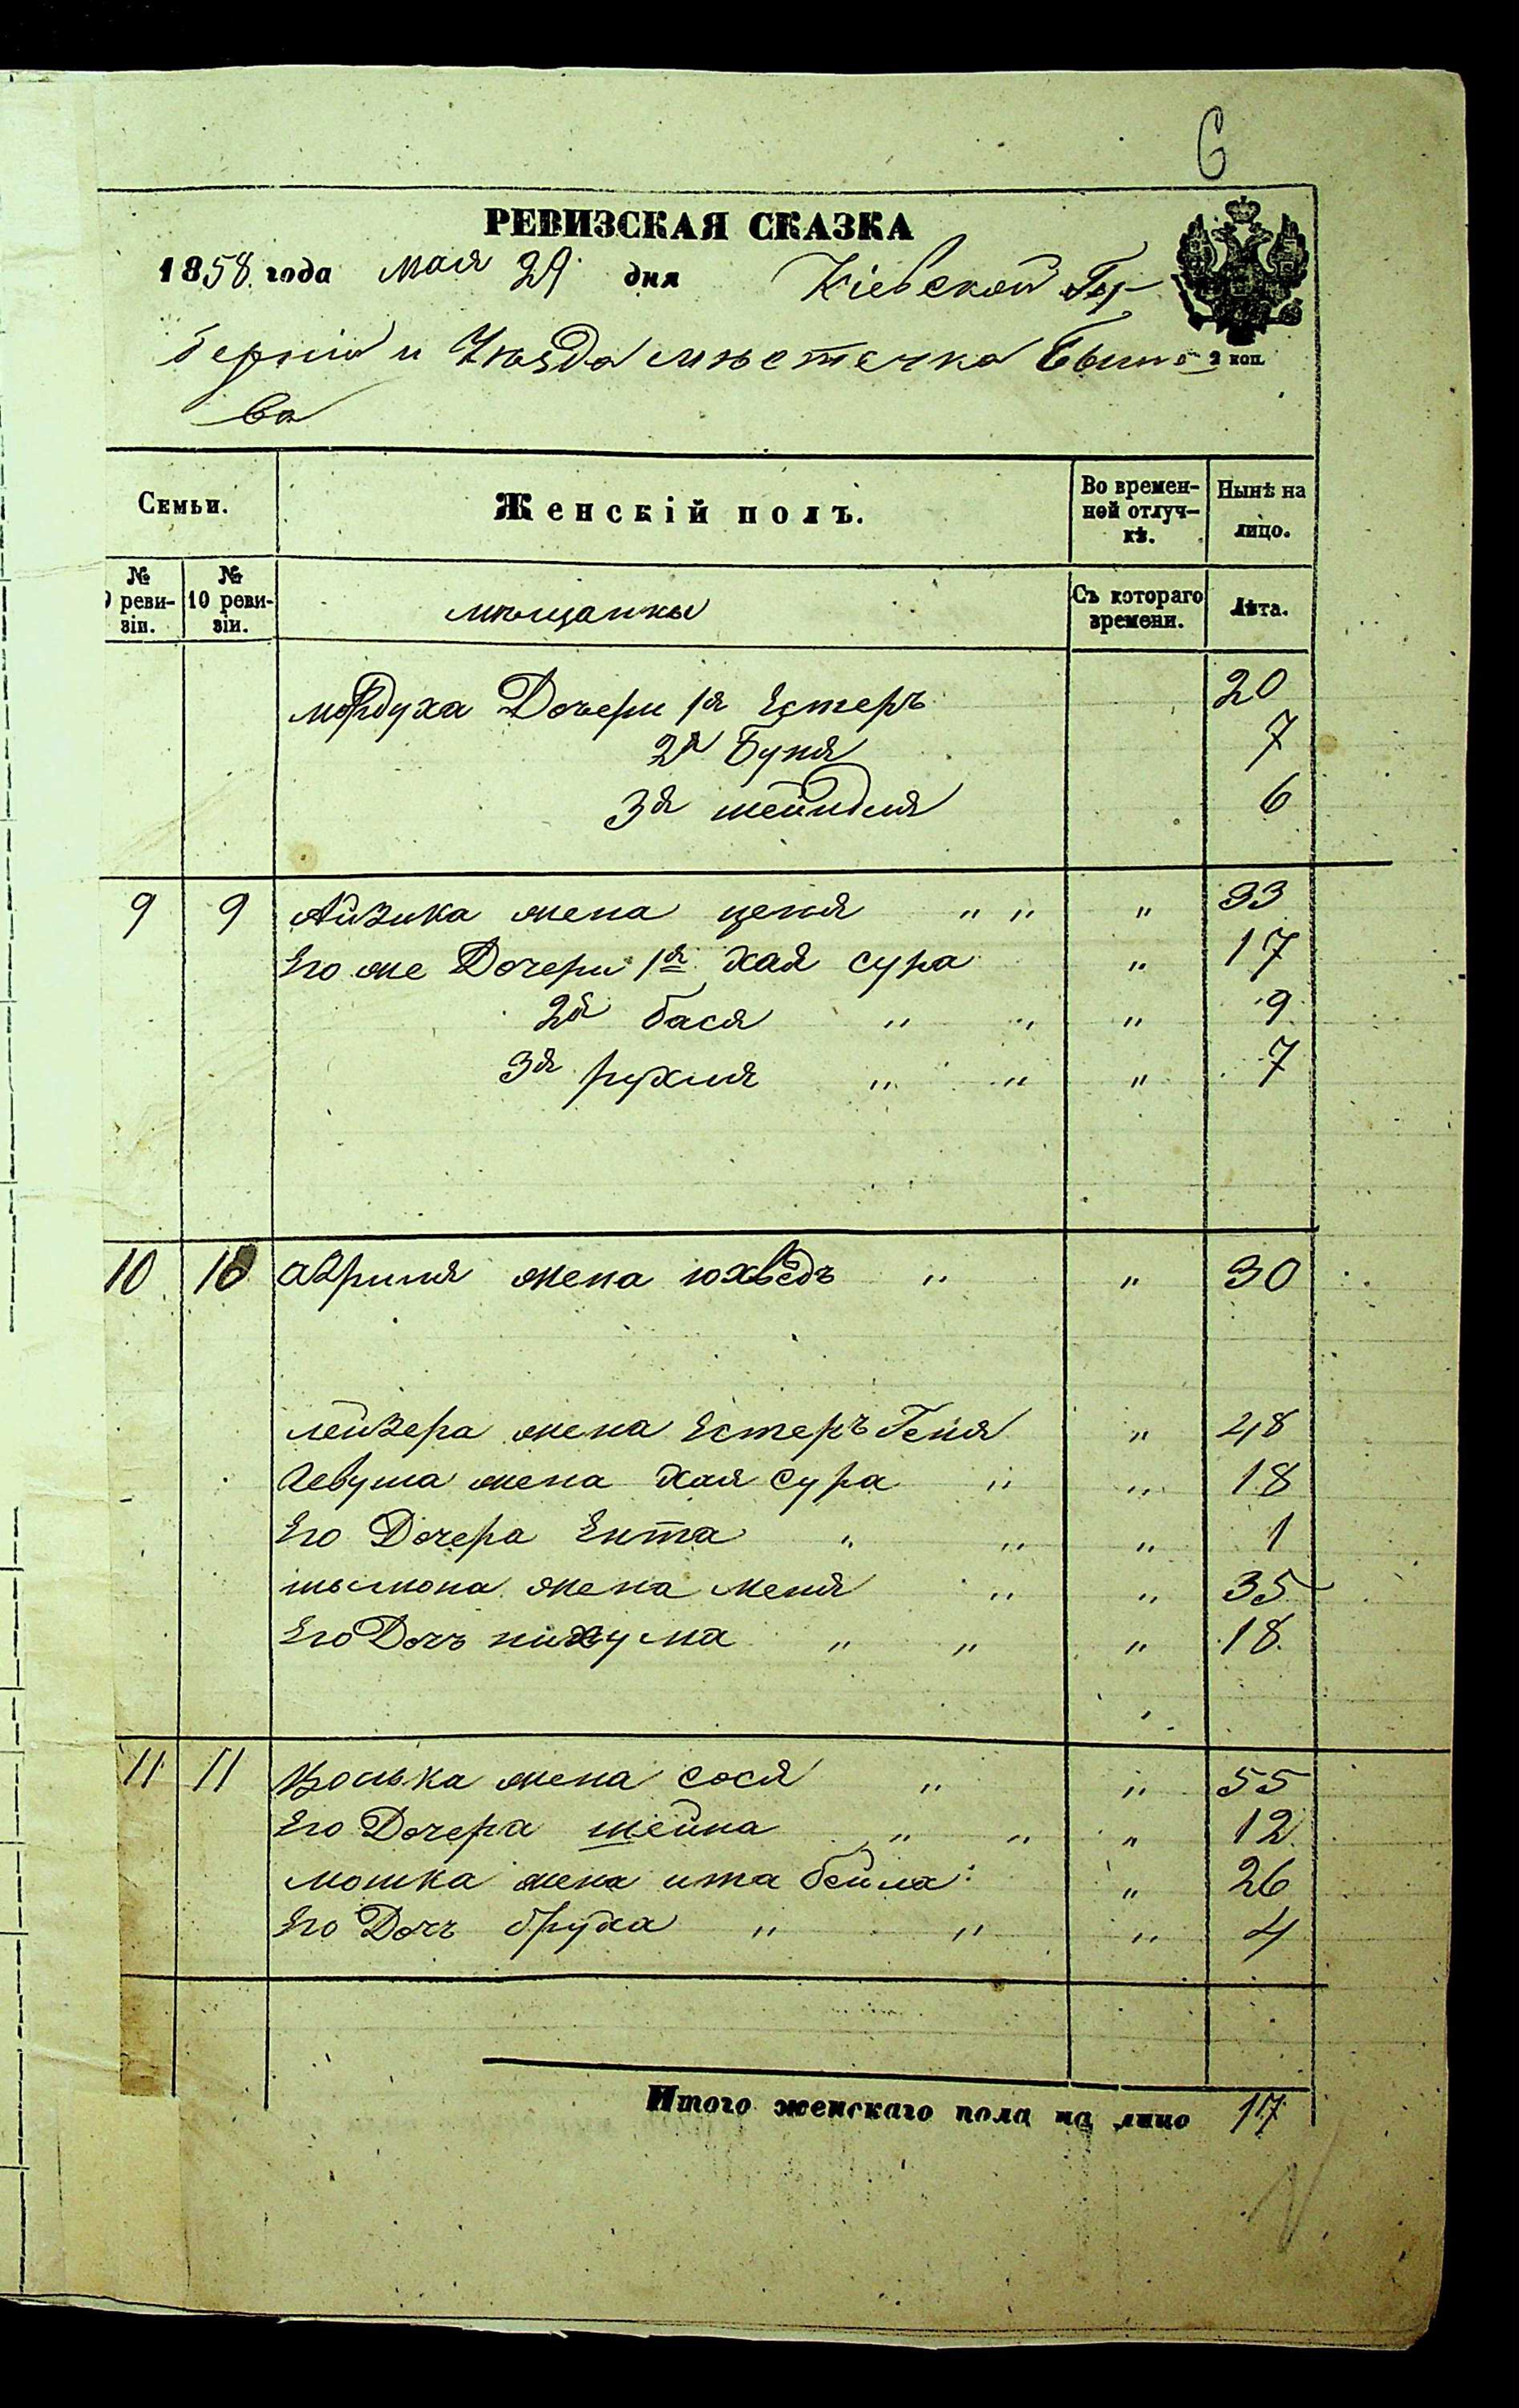 6
РЕВИЗСКАЯ СКАЗКА
1858 года мая 29 дня Кіевской Гу-
берніи и Уѣзда мѣстечка Быше-
2 коп.
ва
Семьи.
Женскій полъ.
Во времен-
ной отлуч-
кѣ.
Нынѣ на
лицо.
№
9 реви-
зіи.
№
10 реви-
зіи.
мѣщанки
Съ котораго
времени.
Лѣта.
Мордуха Дочери 1я Естеръ 20
2я Буня 7
3я шейндля 6
9 9 Айзика жена ценя " " " 33
Его же Дочери 1я хая сура " 17
2я бася " " " 9
3я рухля " " " 7
10 10 авриля жена юхведъ " " 30
лейзера жена Естеръ Геня " 48
Левуша жена хая сура " " 18
Его Дочера Ента " " " 1
шымона жена меня " " 35
Его Дочъ нихума " " " 18
11 11 Волька жена сося " " 55
Его Дочера шейна " " " 12
мошка жена ита бейла " 26
Его Дочъ бруха " " " 4
Итого женскаго пола на лицо 17